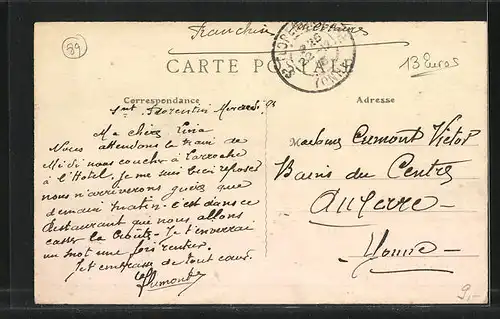 89
Franchise
13 Euros
CARTE PO
Correspondance
Adresse
St Florentin Mercredi
Ma chère Lina
Nous attendons le train de
Midi nous coucher à Laroche
à l'Hotel. Je me suis bien reposée
nous n'arriverons guère que
demain matin. c'est dans ce
Restaurant que nous allons
casser la croûte. Je t'enverrai
un mot une fois rentrer.
Je t'embrasse de tout cœur.
Madame Cumont Victor
Bains du Centre
Auxerre
Yonne
9,-